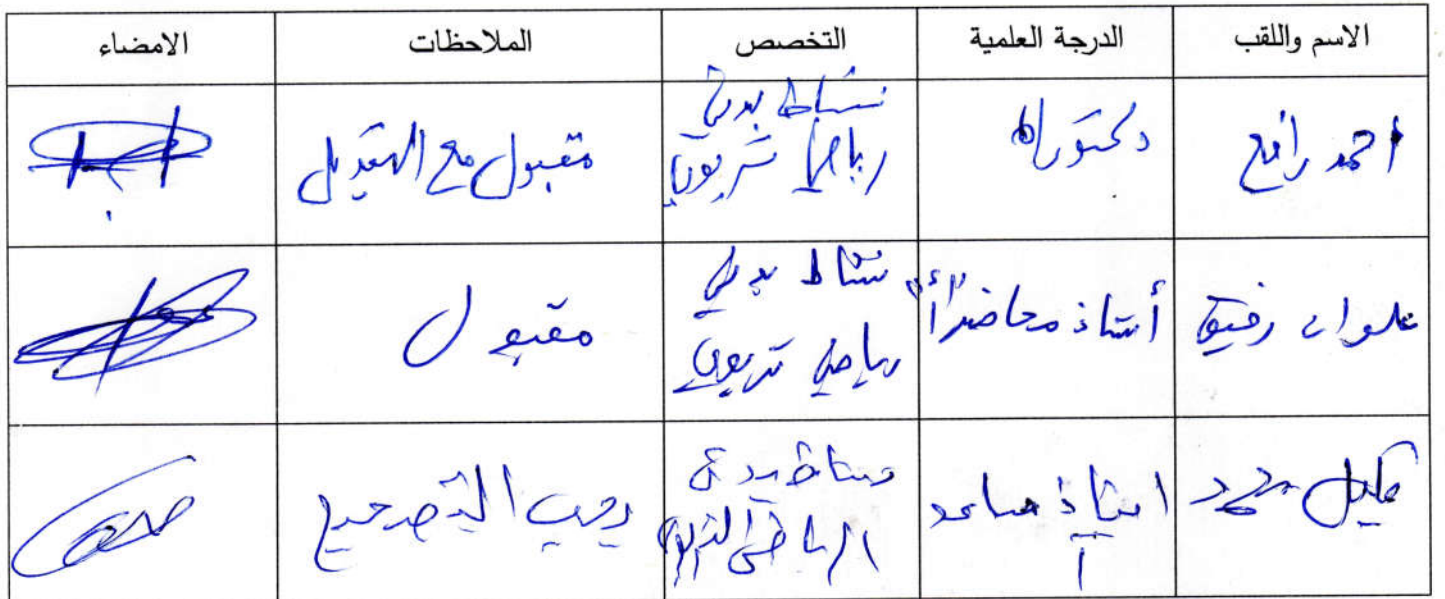 الاسم واللقب الدرجة العلمية التخصص الملاحظات الامضاء
احمد رافع دكتوراه نشاط بدني
رياضي تربوي مقبول مع التعديل
علوان رفيق أستاذ محاضر "أ" نشاط بدني
رياضي تربوي مقبول
محمد استاذ مساعد
أ نشاط بدني
الرياضي التربوي يجب التصحيح